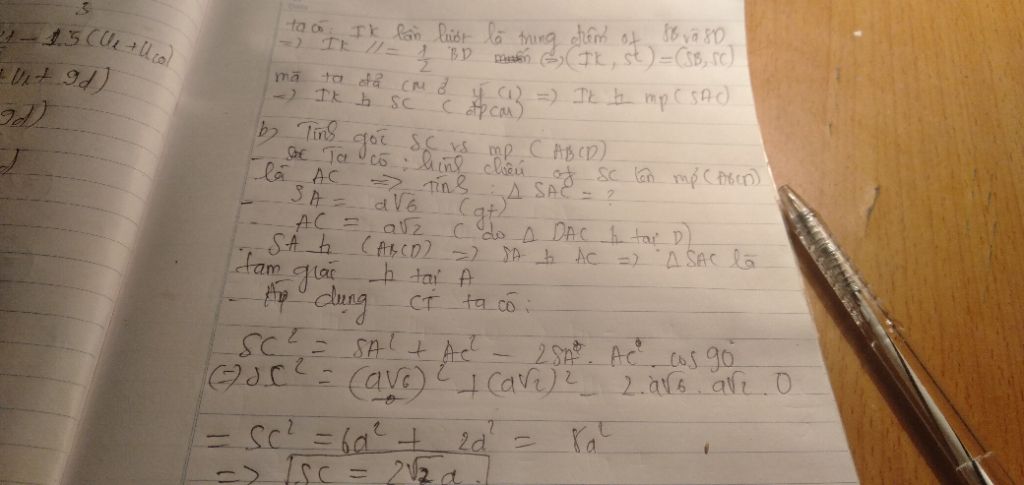 3
U1 - 1,5 (U1 + U10)
U1 + 9d)
9d)
ta có: IK lần lượt là trung điểm of SB và SD
=> IK // = 1/2 BD (=> (IK, SC) = (SB, SC)
mà ta đã CM ở ý (1) => IK h mp (SAC)
=> IK h SC (đpcm)
b) Tính góc SC vs mp (ABCD)
Ta có: hình chiếu of SC lên mp (ABCD)
là AC => Tính: Δ SAC = ?
- SA = a√6 (gt)
- AC = a√2 (do Δ DAC h tại D)
- SA h (ABCD) => SA h AC => Δ SAC là
tam giác h tại A
- Áp dụng CT ta có:
SC² = SA² + AC² - 2SA . AC . cos 90
(=) SC² = (a√6)² + (a√2)² - 2.a√6 . a√2 . 0
= SC² = 6a² + 2a² = 8a²
=> SC = 2√2 a.